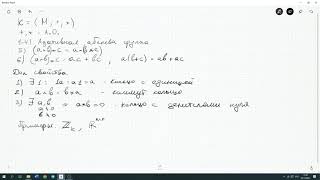 K = (M, +, *)
+, * - л.о.
1-4) Аддитивная абелева группа
5) (a*b)*c = a*(b*c)
6) (a+b)*c = ac + bc, a(b+c) = ab + ac
Доп свойства
1) ∃ 1 : 1a = a1 = a - кольцо с единицей
2) a*b = b*a - коммут кольцо
3) ∃ a,b a*b = 0 - кольцо с делителями нуля
a≠0
b≠0
Примеры: ℤₖ, ℝⁿˣⁿ